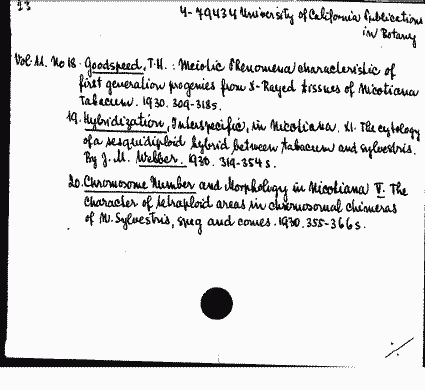 23
4-79434 University of California Publications
in Botany
Vol. 11. No 18. Goodspeed, T.H.: Meiotic Phenomena characteristic of
first generation progenies from X-Rayed tissues of Nicotiana
Tabacum. 1930. 309-318s.
19. Hybridization, Interspecific, in Nicotiana. XI. The cytology
of a sesquidiploid hybrid between tabacum and sylvestris.
By J. M. Webber. 1930. 319-354s.
20. Chromosome Number and Morphology in Nicotiana V. The
character of tetraploid areas in chromosomal chimeras
of N. Sylvestris, speg and comes. 1930. 355-366s.